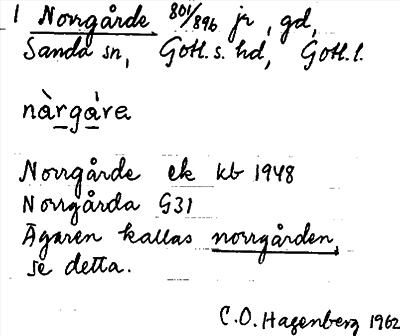 1 Norrgårde 801/896 jr, gd,
Sanda sn, Gotl. s. hd, Gotl. l.
nàrgàre
Norrgårde ek kb 1948
Norrgårda G31
Ägaren kallas norrgården,
se detta.
C.O. Hagenberg 1962